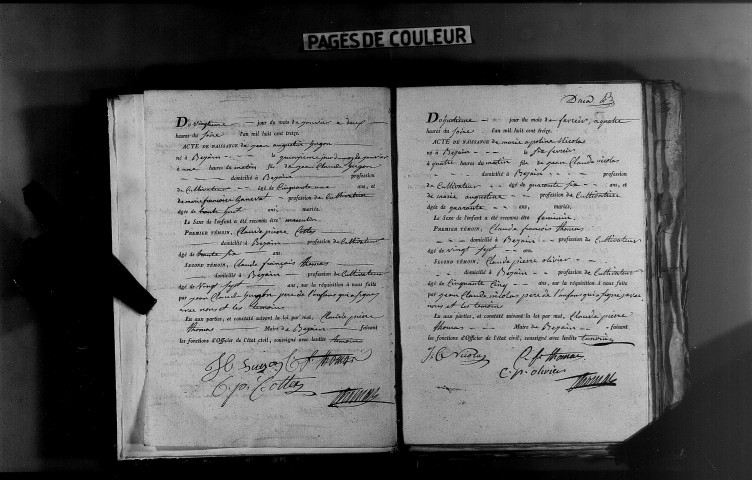 PAGES DE COULEUR
Du vingtieme jour du mois de janvier a deux
heures du soir d'an mil huit cent treize.
ACTE DE NAISSANCE de jean augustin
né à Begain le quinzieme jour du mois de janvier
à une heures de matin fils de jean Claude
domicilié à Begain profession
de Cultivateur âgé de Cinquante ans, et
de marie francoise profession de Cultivatrice
âgée de trente huit ans, mariés.
Le Sexe de l'enfant a été reconnu être masculin
PREMIER TÉMOIN, Claude pierre Cottez
domicilié à Begain profession de Cultivateur
âgé de trente six ans.
SECOND TÉMOIN, Claude françois thomas
domicilié à Begain profession de Cultivateur
âgé de Vingt Sept ans, sur la réquisition à nous faite
par jean Claude pere de l'enfant qui a signé
avec nous et les temoins
Lu aux parties, et constaté suivant la loi par moi, Claude pierre
thomas Maire de Begain faisant
les fonctions d'Officier de l'état civil, soussigné avec lesdits temoins
C. f. thomas
C. p. Cottez
thomas
Du quatrieme jour du mois de fevrier, a quatre
heures du soir d'an mil huit cent treize.
ACTE DE NAISSANCE de marie Nicolas
né à Begain le fevrier
à quatre heures du matin fille de jean Claude nicolas
domicilié à Begain profession
de Cultivateur âgé de quarante six ans, et
de marie augustine profession de Cultivatrice
âgée de quarante ans, mariés.
Le Sexe de l'enfant a été reconnu être feminine
PREMIER TÉMOIN, Claude francois thomas
domicilié à Begain profession de Cultivateur
âgé de vingt sept ans.
SECOND TÉMOIN, Claude pierre olivier
domicilié à Begain profession de Cultivateur
âgé de Cinquante Cinq ans, sur la réquisition à nous faite
par jean Claude nicolas pere de l'enfant qui a signé avec
nous et les temoins
Lu aux parties, et constaté suivant la loi par moi, Claude pierre
thomas Maire de Begain faisant
les fonctions d'Officier de l'état civil, soussigné avec lesdits temoins
J. C. Nicolas C. f. thomas
C. p. olivier
thomas